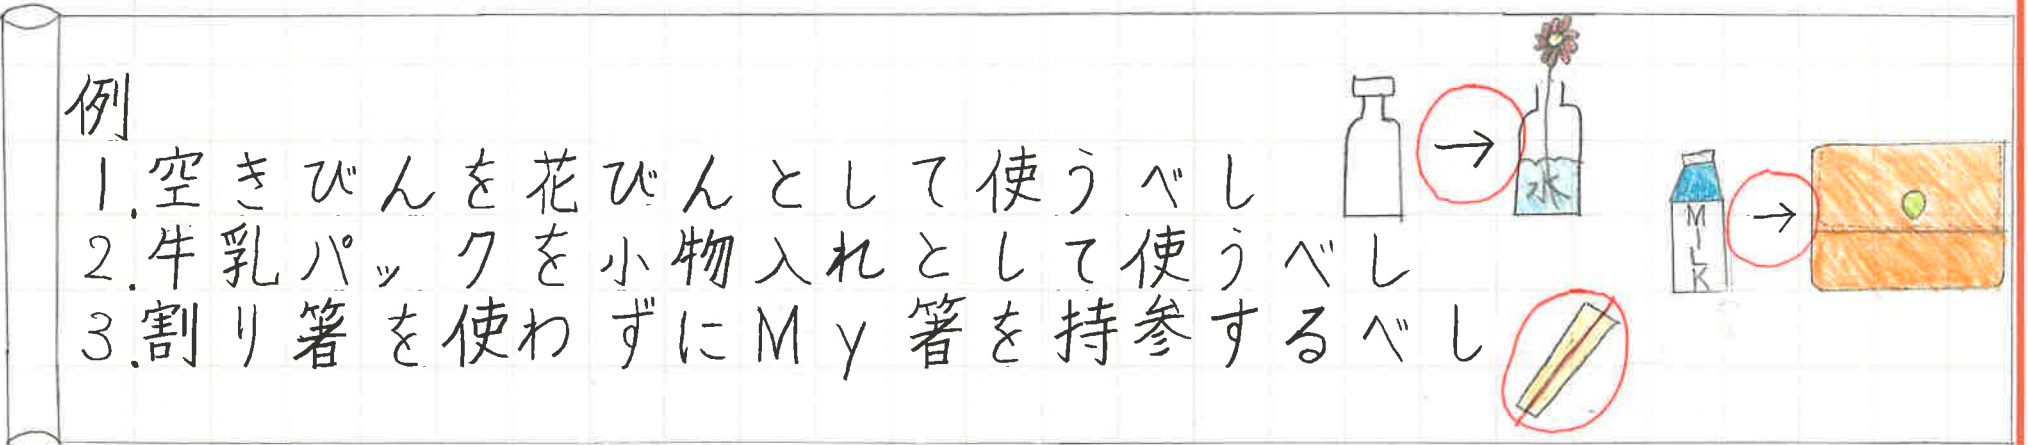 例
1.空きびんを花びんとして使うべし
2.牛乳パックを小物入れとして使うべし
3.割り箸を使わずにMy箸を持参するべし
水
MILK